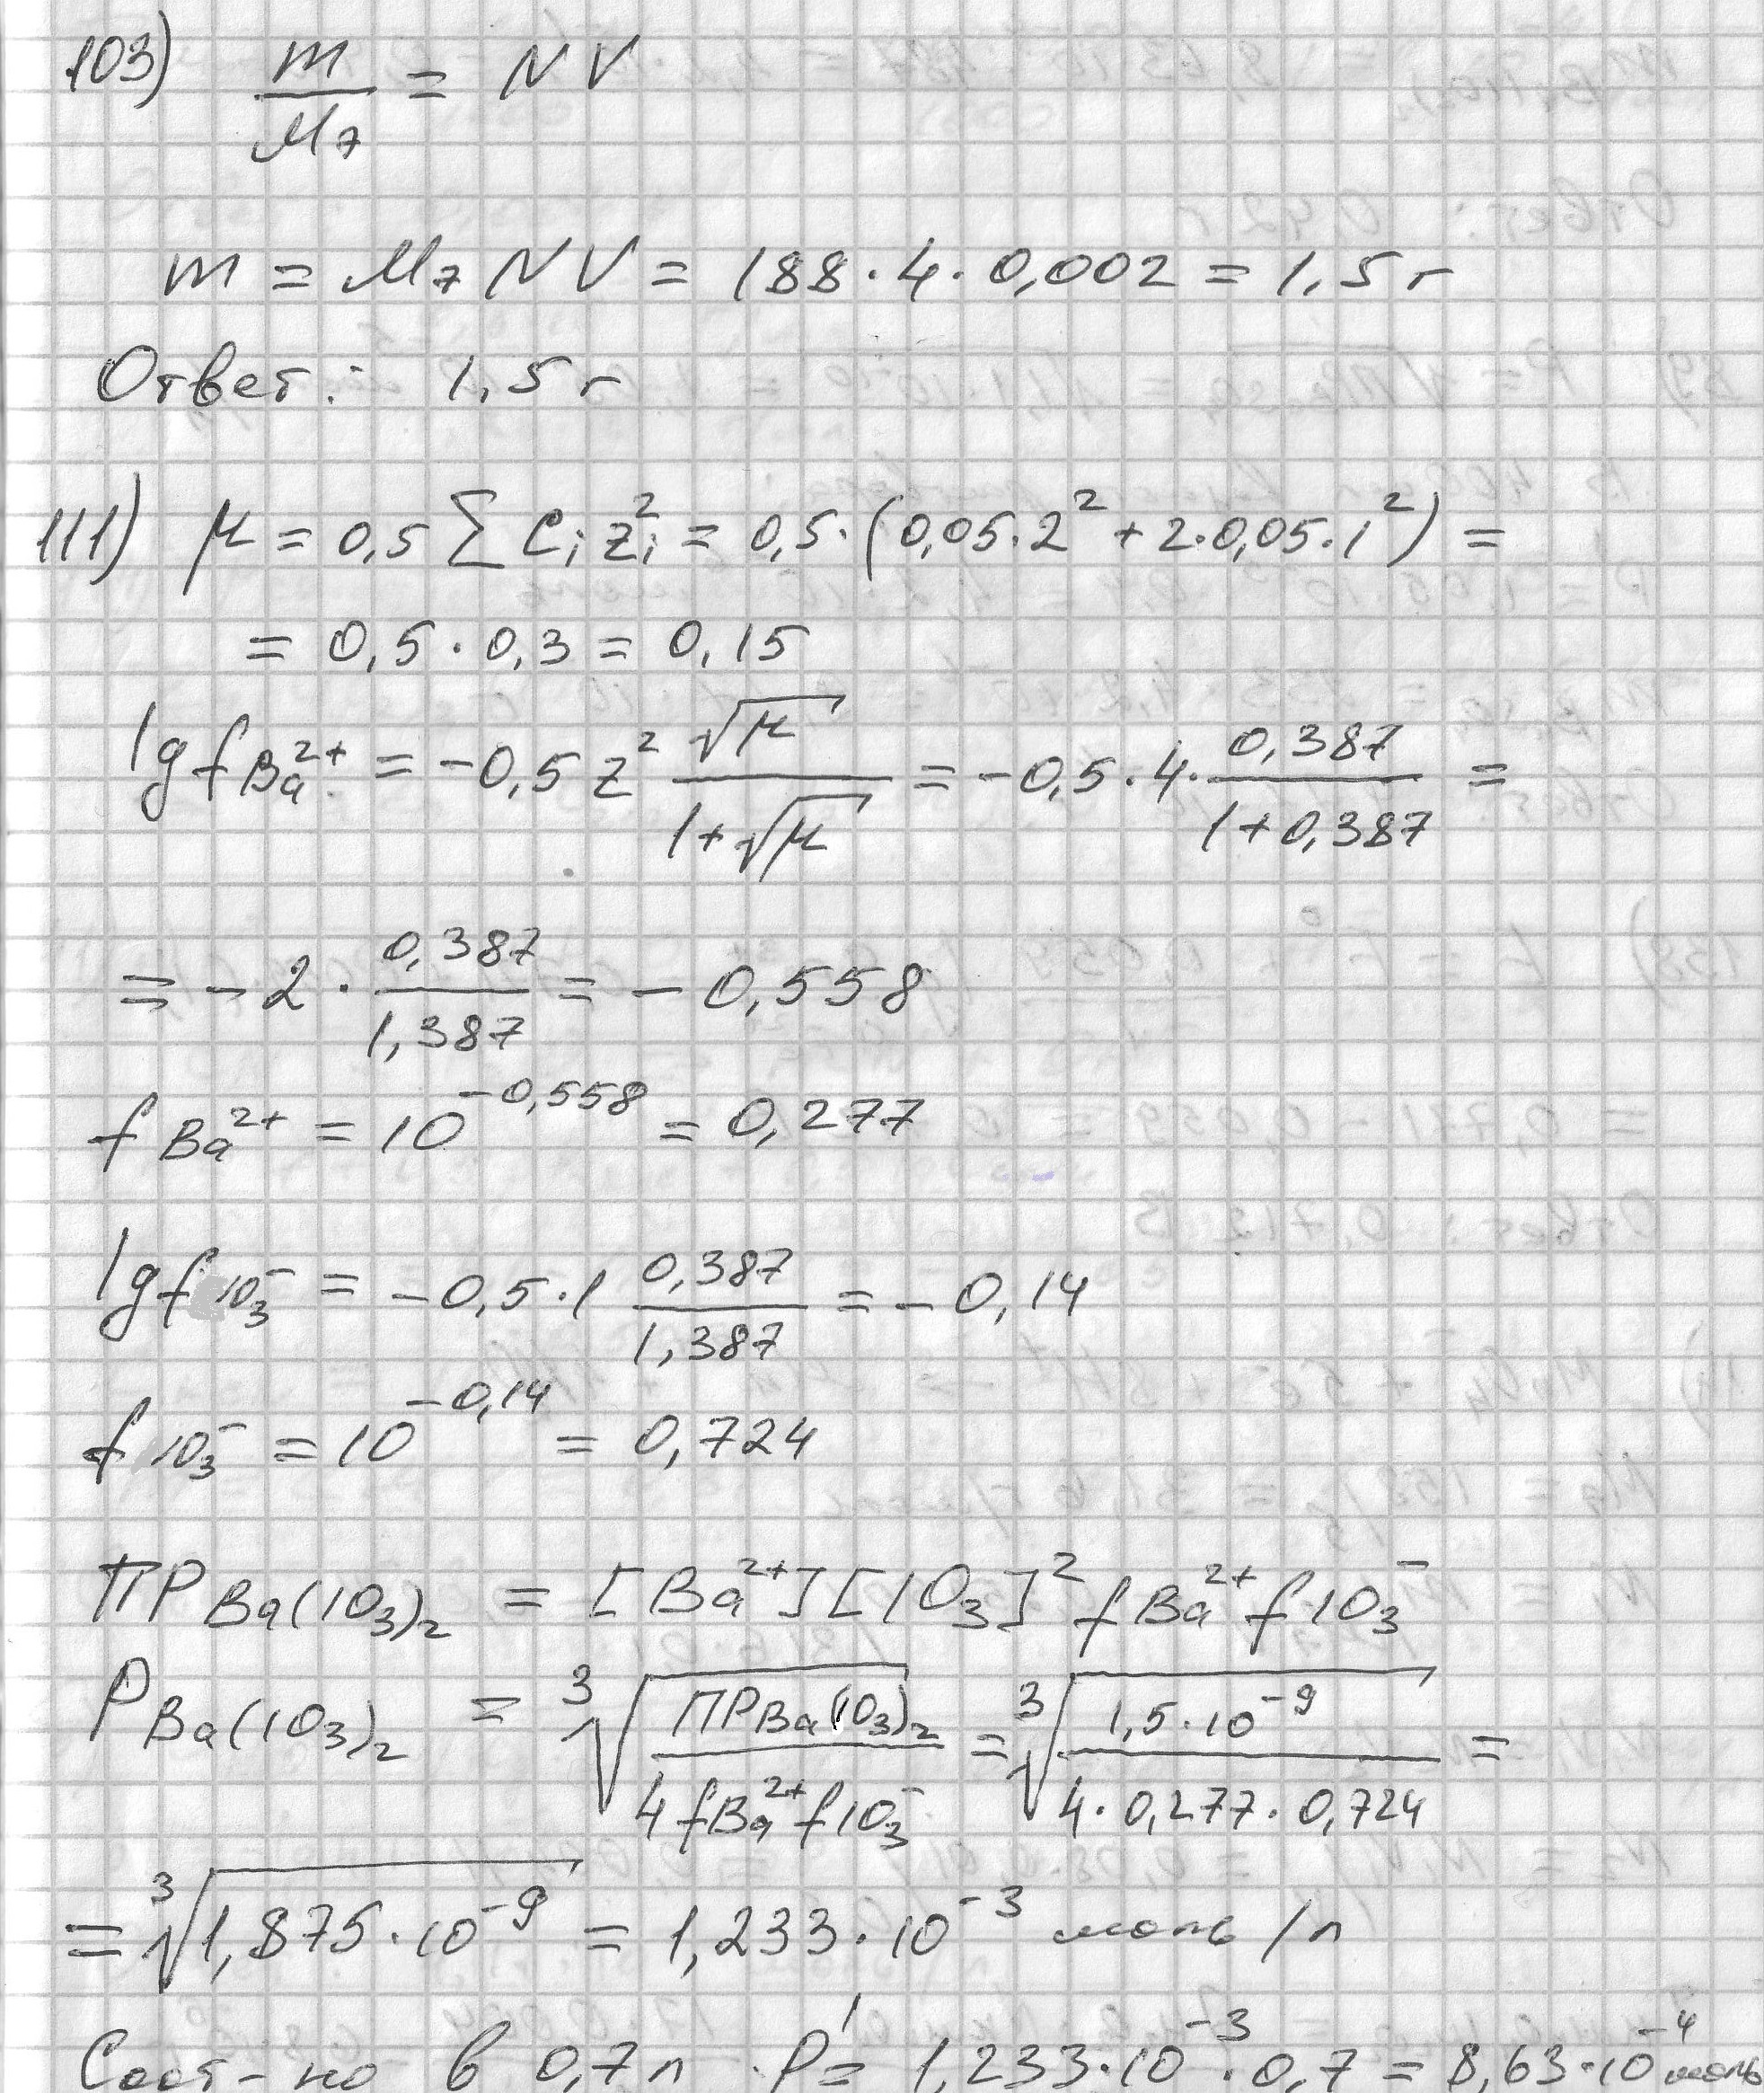 103) m/Mэ = NV
m = Mэ NV = 188·4·0,002 = 1,5 г
Ответ: 1,5 г
111) μ = 0,5 Σ Ci zi² = 0,5·(0,05·2² + 2·0,05·1²) =
= 0,5·0,3 = 0,15
lg f Ba²⁺ = -0,5 z² √μ/(1+√μ) = -0,5·4·0,387/(1+0,387) =
= -2·0,387/1,387 = -0,558
f Ba²⁺ = 10^-0,558 = 0,277
lg f IO₃⁻ = -0,5·1 0,387/1,387 = -0,14
f IO₃⁻ = 10^-0,14 = 0,724
ПР Ba(IO₃)₂ = [Ba²⁺][IO₃]² f Ba²⁺ f IO₃⁻
P Ba(IO₃)₂ = ³√(ПР Ba(IO₃)₂/(4 f Ba²⁺ f IO₃⁻)) = ³√(1,5·10⁻⁹/(4·0,277·0,724)) =
= ³√(1,875·10⁻⁹) = 1,233·10⁻³ моль/л
Соот-но в 0,7 л P' = 1,233·10⁻³·0,7 = 8,63·10⁻⁴ моль